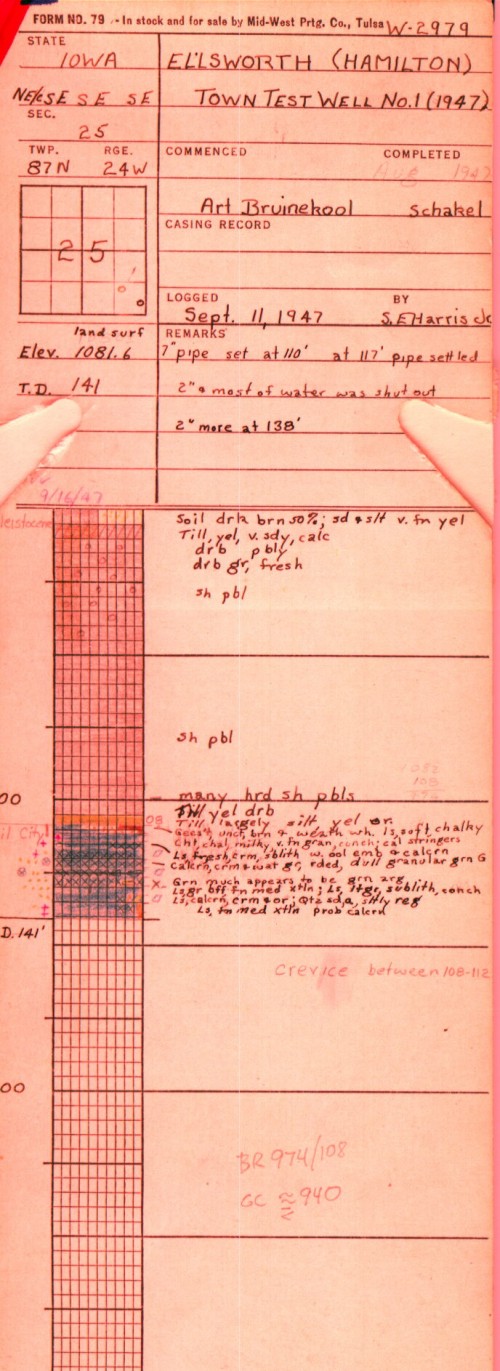 FORM NO. 79 - In stock and for sale by Mid-West Prtg. Co., Tulsa W-2979
STATE
IOWA ELLSWORTH (HAMILTON)
SE SE TOWN TEST WELL No.1 (1947)
SEC.
25
TWP. RGE. COMMENCED COMPLETED
87N 24W Aug 1947
Art Bruinekool Schakel
CASING RECORD
25
LOGGED BY
Sept. 11, 1947 S.E Harris Jr
land surf REMARKS
Elev. 1081.6 7" pipe set at 110' at 117' pipe settled
T.D. 141 2" & most of water was shut out
2" more at 138'
9/16/47
leistocene Soil drk brn 50%; sd & slt v. fn yel
Till, yel, v. sdy, calc
drb pbly
drb gr, fresh
sh pbl
sh pbl
many hrd sh pbls
00 Till yel drb
Till, largely silt, yel or
unct, brn & weath wh. ls, soft, chalky
il City Cht, chal, milky v. fn gran, conch; cal stringers
Ls fresh, crm, sblith w. ool emb & calcrn
Calcrn, crm & wat gr, rded, dull granular grn G
Grn much appears to be grn arg
off fn med xtln; Ls, sublith, conch
Ls, calcrn, crm & or; Qtz sd, a, sltly reg
Ls, fn med xtln prob calcrn
D. 141'
Crevice between 108-112
00
BR 974/108
GC ≈ 940